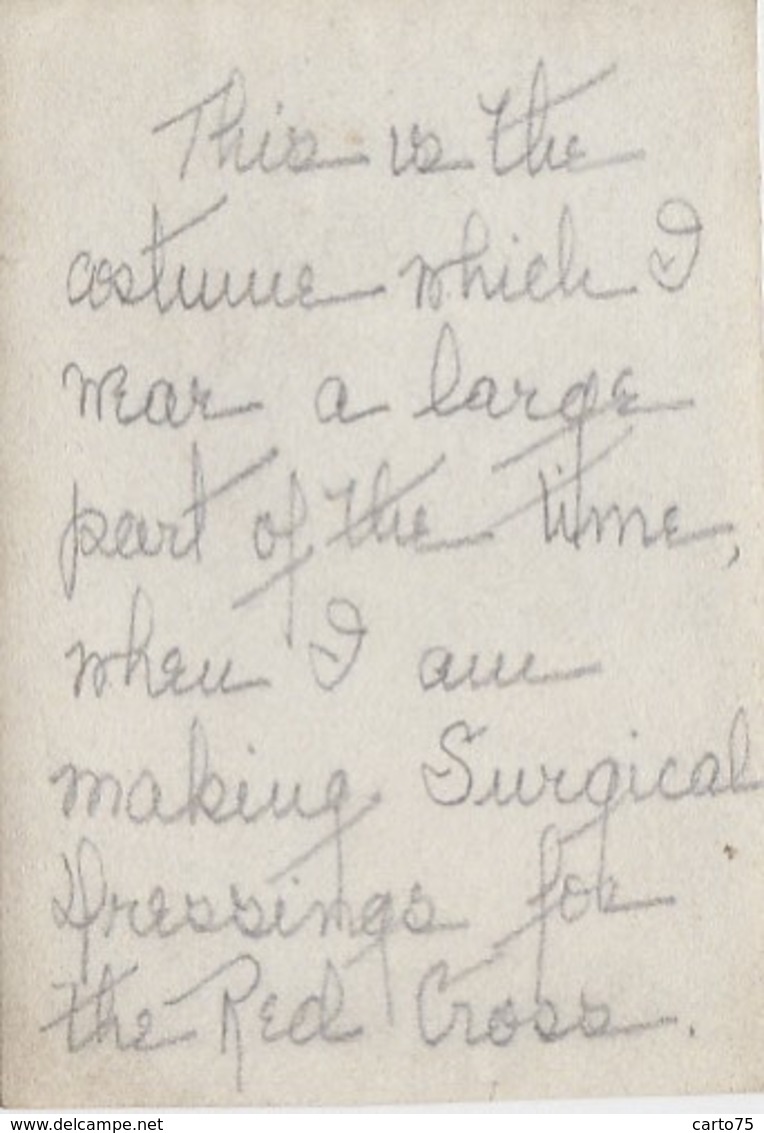 This is the
costume which I
wear a large
part of the time,
when I am
making Surgical
Dressings for
the Red Cross.
www.delcampe.net
carto75